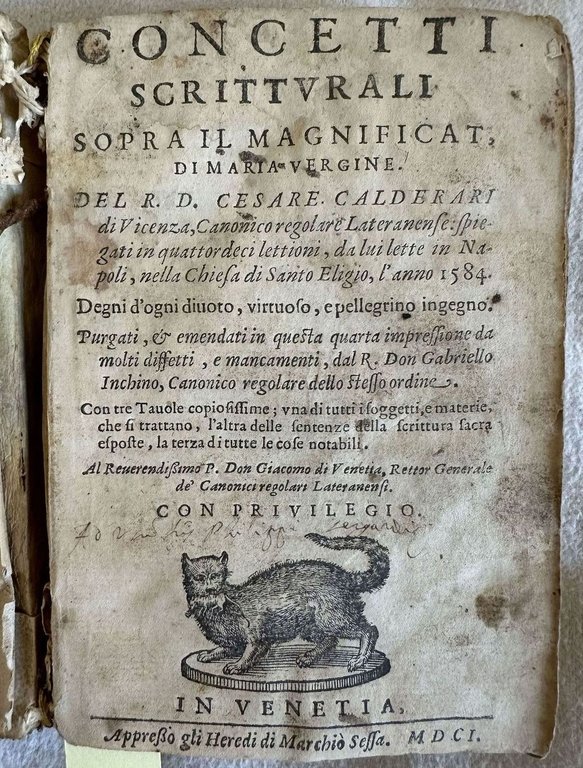 CONCETTI
SCRITTVRALI
SOPRA IL MAGNIFICAT,
DI MARIA VERGINE.
DEL R. D. CESARE CALDERARI
di Vicenza, Canonico regolare Lateranense: spie-
gati in quattordeci lettioni, da lui lette in Na-
poli, nella Chiesa di Santo Eligio, l'anno 1584.
Degni d'ogni diuoto, virtuoso, e pellegrino ingegno.
Purgati, & emendati in questa quarta impressione da
molti diffetti, e mancamenti, dal R. Don Gabriello
Inchino, Canonico regolare dello stesso ordine.
Con tre Tauole copiosissime; vna di tutti i soggetti, e materie,
che si trattano, l'altra delle sentenze della scrittura sacra
esposte, la terza di tutte le cose notabili.
Al Reuerendißimo P. Don Giacomo di Venetia, Rettor Generale
de' Canonici regolari Lateranensi.
CON PRIVILEGIO.
Philippi
IN VENETIA,
Appreßo gli Heredi di Marchiò Sessa. MDCI.